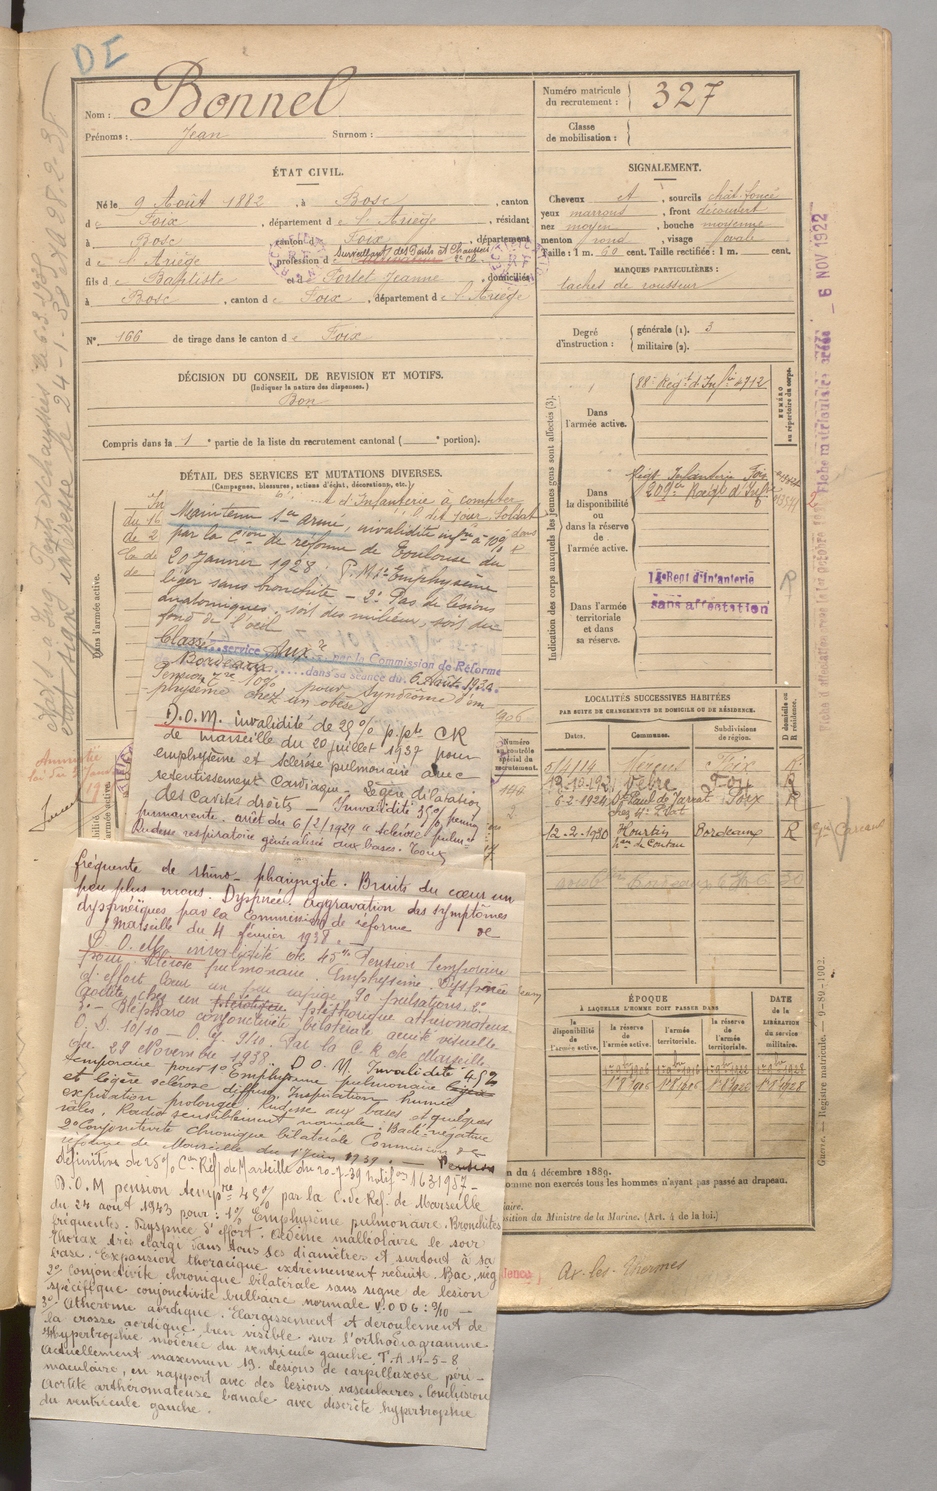 DI
Nom : Bonnel
Prénoms : Jean Surnom :
Numéro matricule du recrutement : 327
Classe de mobilisation :
ÉTAT CIVIL.
Né le 9 Août 1882, à Bosc, canton
d e Foix, département d e l'Ariège, résidant
à Bosc, canton d Foix, département
d e l'Ariège, profession d Surveillant des Ponts et Chaussées 2e cl.
fils d e Baptiste et d e Fortet Jeanne, domiciliés
à Bosc, canton d e Foix, département d e l'Ariège
N° 166 de tirage dans le canton d e Foix
DÉCISION DU CONSEIL DE REVISION ET MOTIFS.
(Indiquer la nature des dispenses.)
Bon
Compris dans la 1e partie de la liste du recrutement cantonal ( e portion).
DÉTAIL DES SERVICES ET MUTATIONS DIVERSES.
(Campagnes, blessures, actions d'éclat, décorations, etc.)
d'Infanterie à compter
Maintenu Ser armé, invalidité infre à 10%
par la Cion de réforme de Toulouse du
20 Janvier 1928 : P.M. 1° Emphysème
léger sans bronchite – 2° Pas de lésions
anatomiques, soit des milieux, soit du
fond de l'oeil
Classé service Auxre par la Commission de Réforme
Bordeaux dans sa séance du 6 Août 1930
Pension Tre 10% pour syndrôme d'em-
physème chez un obèse
D.O.M. invalidité de 20% p.pte CR
de Marseille du 20 juillet 1937 pour
emphysème et sclérose pulmonaire avec
retentissement Cardiaque. Légère dilatation
des cavités droites – Invalidité 35% pension
permanente. arrêt du 6/2/1929 "Sclérose pulmre
Rudesse respiratoire généralisée aux bases. Toux
fréquente de rhino-pharyngite. Bruits du cœur un
peu plus sourds. Dyspnée. Aggravation des symptômes
dyspnéiques par la Commission de réforme de
Marseille du 4 février 1938. –
D.O.M. invalidité de 45% Pension Temporaire
pour sclérose pulmonaire. Emphysème. Dyspnée
d'effort Cœur un peu rapide 90 pulsations. 2°
Aortite chez un pléthorique athéromateux
3° – Blépharo conjonctivite bilatérale acuité visuelle
O. D. 10/10 – O. G. 9/10. Par la C.R de Marseille
du 29 Novembre 1938. D.O.M. Invalidité 45%
temporaire pour 1° Emphysème pulmonaire
et légère sclérose diffuse. Inspiration humée
expiration prolongée. Rudesse aux bases et quelques
râles. Radio sensiblement normale. Bacil. négative
2° Conjonctivite chronique bilatérale Commission de
réforme de Marseille du 1er Juin 1939. – Pension
définitive de 25% Con Ref de Marseille du 20-7-39
D.O.M pension tempre 45% par la C. de Ref. de Marseille
du 24 août 1943 pour : 1° Emphysème pulmonaire. Bronchites
fréquentes. Dyspnée d'effort. Oedème malléolaire le soir
Thorax très élargi dans tous ses diamètres et surtout à sa
base. Expansion thoracique extrêmement réduite. Bac. nég
2° Conjonctivite chronique bilatérale sans signe de lésion
spécifique conjonctivite bulbaire normale V.ODG : 9/10 –
3° Athérome aortique. Elargissement et déroulement de
la crosse aortique bien visible sur l'orthodiagramme
Hypertrophie modérée du ventricule gauche. T.A 14-5-8
actuellement maximun 19. Lésions de
maculaire, en rapport avec des lésions vasculaires. Conclusion
Aortite arthéromateuse banale avec discrète hypertrophie
du ventricule gauche.
Dans l'armée active.
Amnistie
SIGNALEMENT.
Cheveux et, sourcils chât foncé
yeux marrons, front découvert
nez moyen, bouche moyenne
menton rond, visage ovale
Taille : 1 m. 60 cent. Taille rectifiée : 1 m. cent.
MARQUES PARTICULIÈRES :
taches de rousseur
Degré d'instruction : générale (1). 3
militaire (2).
Indication des corps auxquels les jeunes gens sont affectés (3).
NUMÉRO au répertoire du corps.
Dans l'armée active. 88e Régt d'Infrie 4712
Dans la disponibilité ou dans la réserve de l'armée active. Régt Infanterie Foix
209e Régt d'Infie
Dans l'armée territoriale et dans sa réserve. 14e Regt d'Infanterie
sans affectation
R
LOCALITÉS SUCCESSIVES HABITÉES
PAR SUITE DE CHANGEMENTS DE DOMICILE OU DE RÉSIDENCE.
Dates. Communes. Subdivisions de région. D domicile ou R résidence.
5/4/14 Mérens Foix R.
Vèbre Foix R
6-2-1924 St Paul de Jarrat Foix R
12-2-1930 Hourtin Bordeaux R
ÉPOQUE
À LAQUELLE L'HOMME DOIT PASSER DANS
DATE DE LA LIBÉRATION DU service militaire.
la disponibilité de l'armée active. la réserve de l'armée active. l'armée territoriale. la réserve de l'armée territoriale.
n du 4 décembre 1889.
omme non exercés tous les hommes n'ayant pas passé au drapeau.
sition du Ministre de la Marine. (Art. 4 de la loi.)
Ax-les-Thermes
Guerre. — Registre matricule. — 9-89.-1902.
- 6 NOV 1922